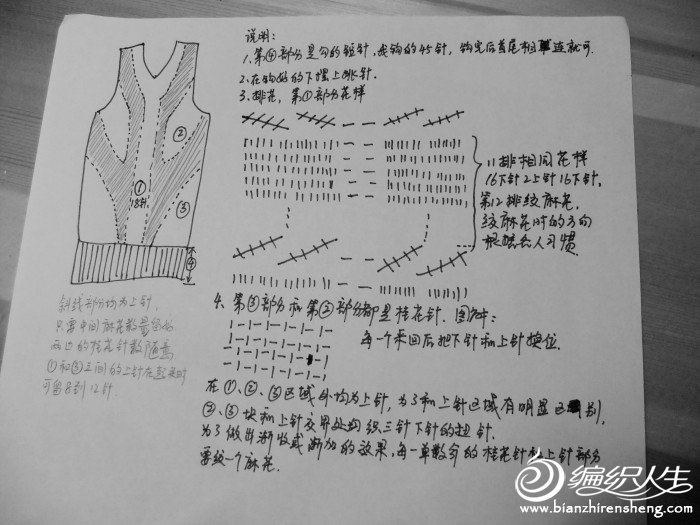 说明:
1.第④部分是勾的短针,我钩的45针,钩完后首尾相连就可.
2.在钩好的下摆上挑针.
3.排花,第①部分花样
②
①
18针
③
④
11排相同花样
16下针2上针16下针,
第12排绞麻花,
绞麻花时的方向
根据个人习惯.
斜线部分均为上针,
只要中间麻花数量留好
两边的桂花针数随意
①和③之间的上针在起头时
可留8到12针.
4.第③部分和第②部分都是桂花针.图解:
每一个来回后把下针和上针换位.
在①、②、③区域外均为上针,为了和上针区域有明显区别,
②、③块和上针交界处均织三针下针的扭针.
为了做出渐收或渐加的效果,每一单数的桂花针和上针部分
要绞一个麻花.
编织人生
www.bianzhirensheng.com